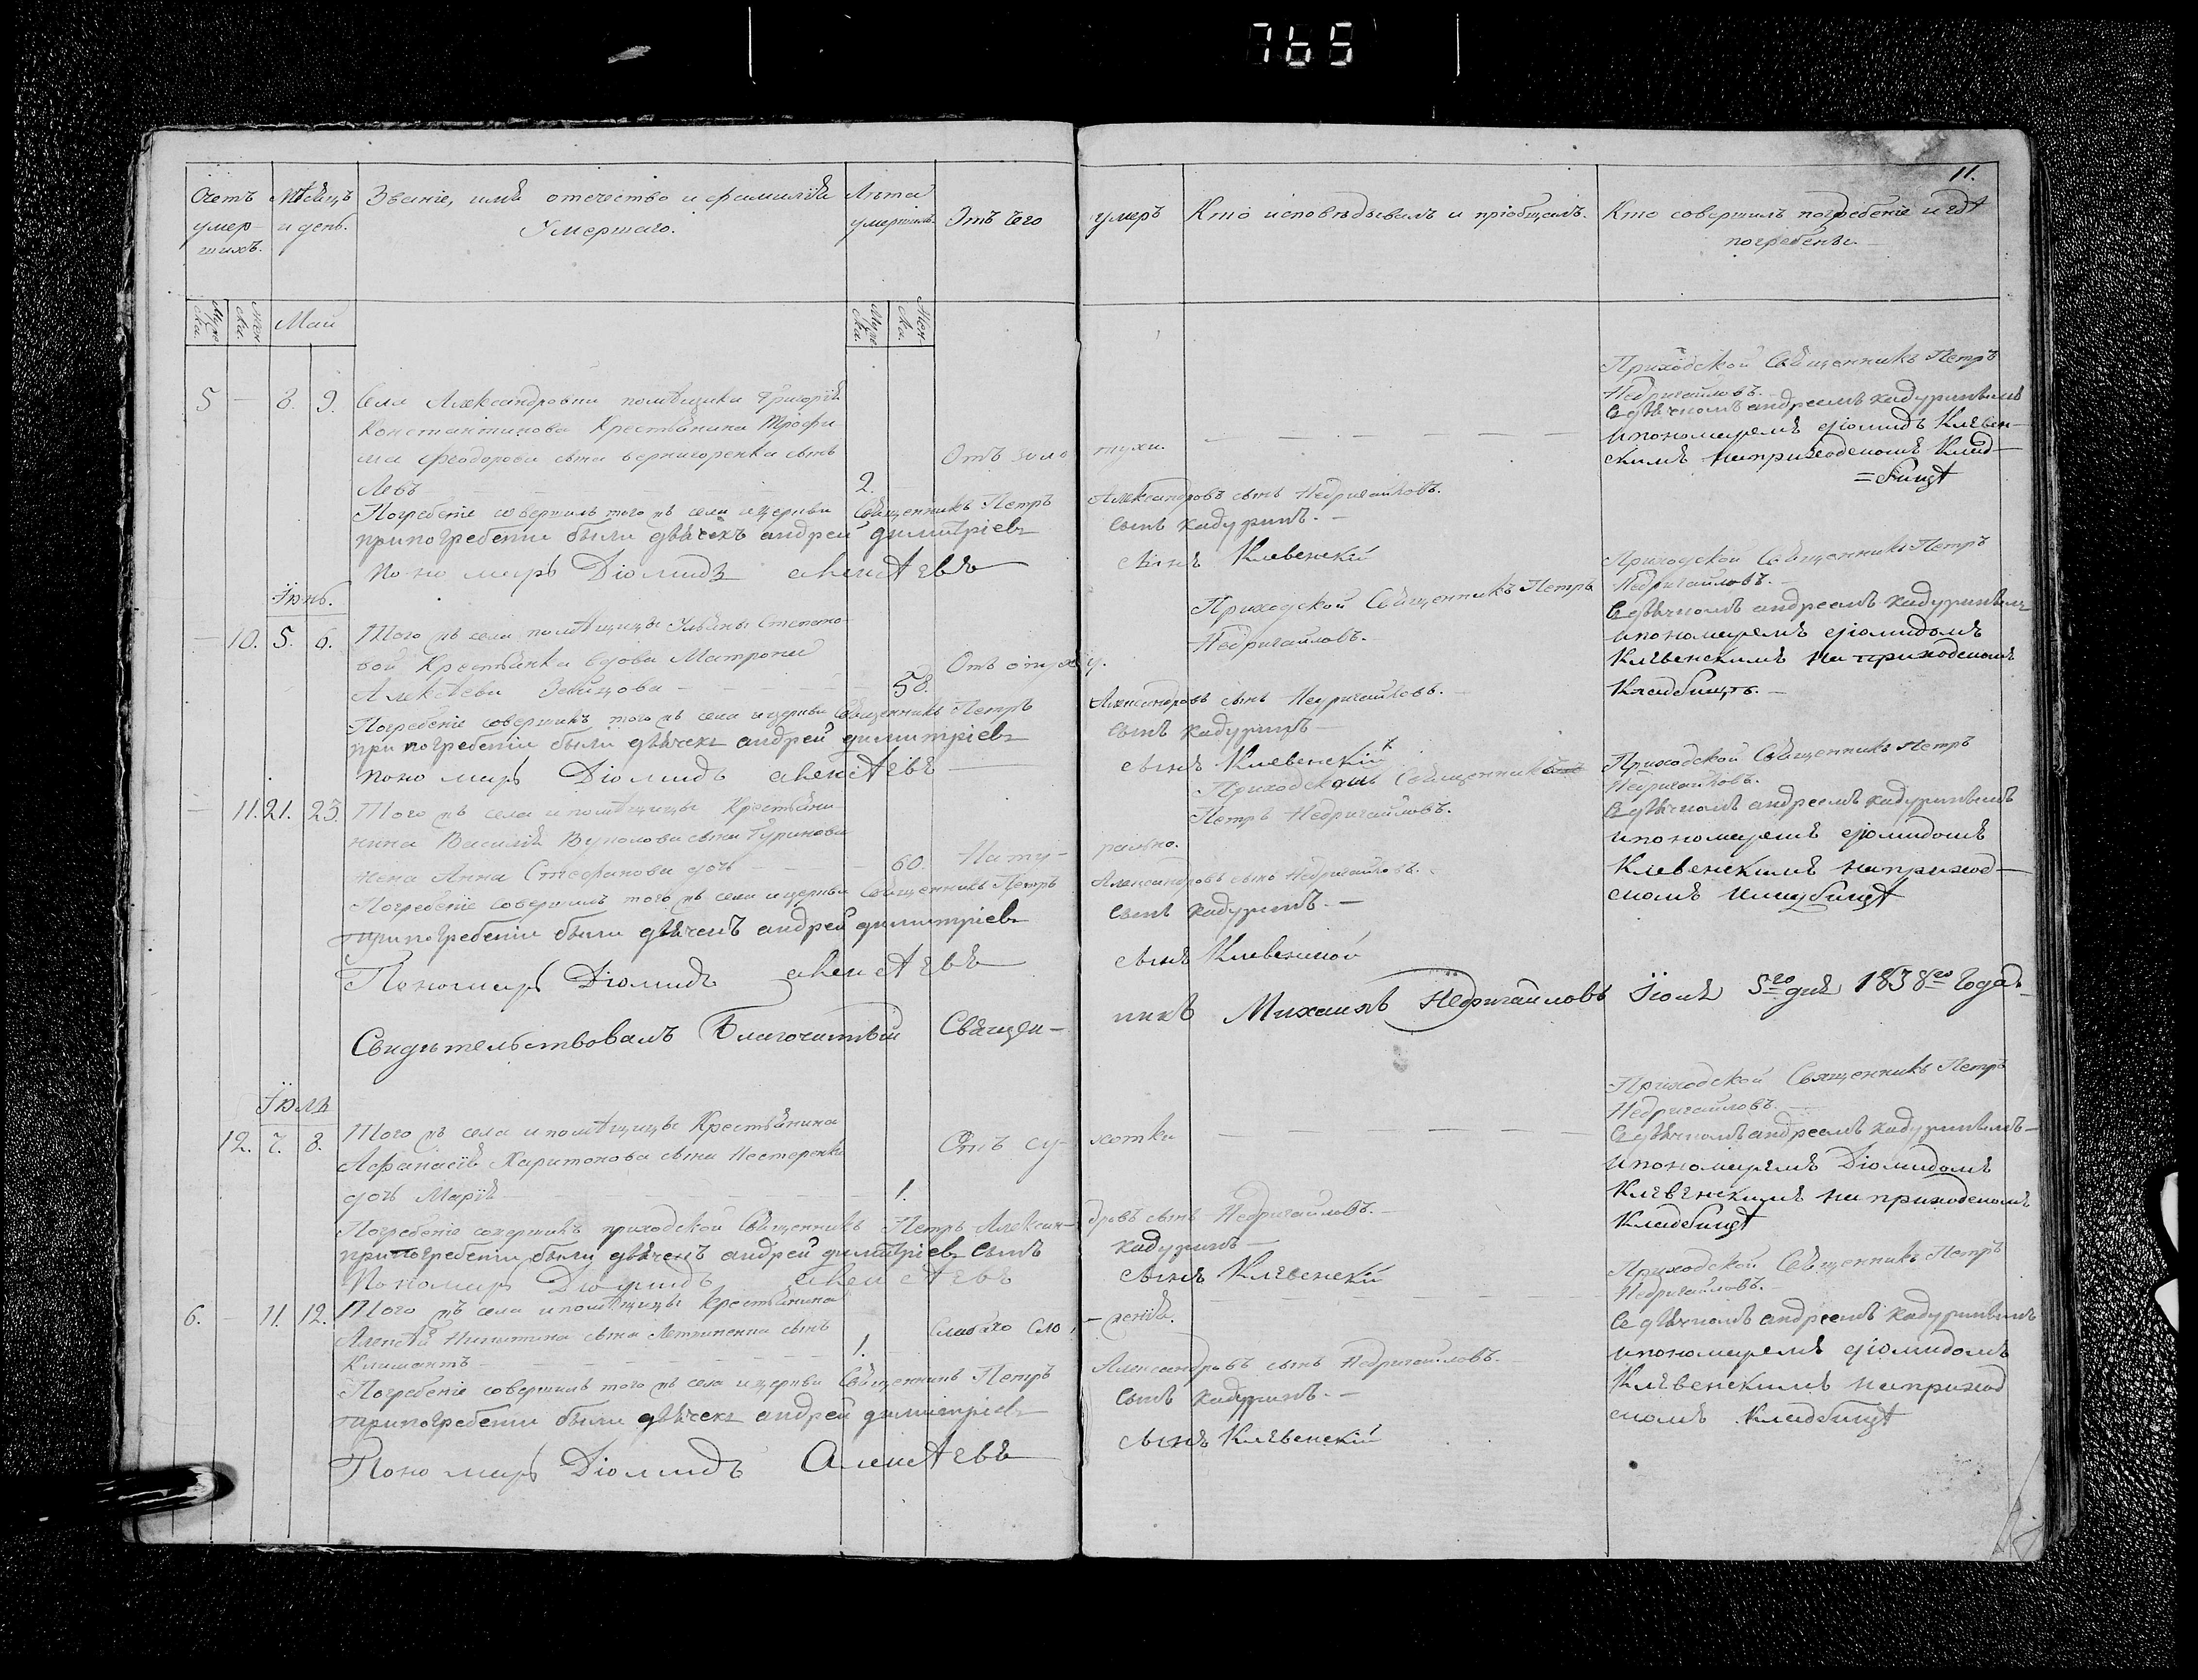 765
11.
Счетъ умер-шихъ.
Мѣсяцъ и день.
Званіе, имя отечество и фамилія Умершаго.
Лѣта умершихъ.
Отъ чего умеръ
Кто исповѣдывалъ и пріобщалъ.
Кто совершилъ погребеніе и гдѣ погребены.
Май
5 — 8. 9. Села Александровки помѣщика Григорія
Константинова Крестьянина Трофи
ма Феодорова сына сынъ
Левъ 2.
Отъ золотухи.
Приходской Священникъ Петръ
Недригайловъ.
Съ дьячкомъ андреемъ кадуринымъ
и пономаремъ діомидъ Клевен-
скимъ на приходскомъ Клад-
=бищѣ
Погребеніе совершилъ того жъ села и церкви Священникъ Петръ Александровъ сынъ Недригайловъ.
при погребеніи были дьячекъ андрей димитріевъ сынъ кадуринъ. —
пономарь Діомидъ алексѣевъ сынъ Клевенскій
Іюнь.
— 10. 5. 6. Того жъ села помѣщицы Ульяны Степано-
вой Крестьянка вдова Матрона
Алексѣева 58.
Приходской Священникъ Петръ
Недригайловъ.
Приходской Священникъ Петръ
Недригайловъ. —
Съ дьячкомъ андреемъ кадуринымъ
и пономаремъ діомидомъ
Клевенскимъ на приходскомъ
Кладбищѣ. —
Погребеніе совершилъ того жъ села и церкви Священникъ Петръ Александровъ сынъ Недригайловъ. —
при погребеніи были дьячекъ андрей димитріевъ сынъ кадуринъ —
пономарь Діомидъ алексѣевъ — сынъ Клевенскій
— 11. 21. 23. Того жъ села и помѣщицы Крестьяни-
нина Василія сына
жена Анна Стефанова дочь — 60.
Натурально.
Приходскомъ Священник
Петръ Недригайловъ.
Приходской Священникъ Петръ
Недригайловъ.
Съ дьячкомъ андреемъ кадуринымъ
и пономаремъ діомидомъ
Клевенскимъ на приход-
скомъ кладбищѣ
Погребеніе совершилъ того жъ села и церкви Священникъ Петръ Александровъ сынъ Недригайловъ.
при погребеніи были дьячекъ андрей димитріевъ сынъ кадуринъ. —
Пономарь Діомидъ алексѣевъ сынъ Клевенской
Свидѣтельствовалъ Благочинный Священникъ Михаилъ Недригайловъ Іюля 5го дня 1838го Года
Іюль
12. 7. 8. Того жъ села и помѣщицы Крестьянина
Афанасія Харитонова сына Нестеренка
дочь Марія 1.
Отъ сухотки
Приходской Священникъ Петръ
Недригайловъ.
Съ дьячкомъ андреемъ кадуринымъ —
и пономаремъ Діомидомъ
Клевенскимъ на приходскомъ
Кладбищѣ
Погребеніе совершилъ приходской Священникъ Петръ Александровъ сынъ Недригайловъ. —
при погребеніи были дьячекъ андрей димитріевъ сынъ кадуринъ —
Пономарь Діомидъ алексѣевъ сынъ Клевенскій
6. — 11. 12. Того жъ села и помѣщицы крестьянина
Алексѣя Никитина сына сынъ
Климантъ 1.
Слабаго Сло-женія.
Приходской Священникъ Петръ
Недригайловъ.
Съ дьячкомъ андреемъ кадуринымъ
и пономаремъ діомидомъ
Клевенскимъ на приход
скомъ Кладбищѣ
Погребеніе совершилъ того жъ села и церкви Священникъ Петръ Александровъ сынъ Недригайловъ. —
при погребеніи были дьячекъ андрей димитріевъ сынъ кадуринъ. —
Пономарь Діомидъ Алексѣевъ сынъ Клевенскій